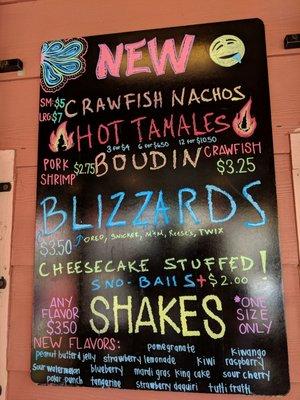 NEW
SM:$5
LRG:$7
CRAWFISH NACHOS
HOT TAMALES
3 for $4 6 for $6.50 12 for $10.50
PORK
SHRIMP $2.75 BOUDIN CRAWFISH
$3.25
BLIZZARDS
$3.50 OREO, SNICKER, M&M, REESE'S, TWIX
CHEESECAKE STUFFED!
SNO-BALLS +$2.00
ANY
FLAVOR
$3.50
SHAKES
*ONE
SIZE
ONLY
NEW FLAVORS: pomegranate Kiwango
peanut butter & jelly strawberry lemonade Kiwi raspberry
sour watermelon blueberry mardi gras king cake sour cherry
polar punch tangerine strawberry daquiri tutti frutti